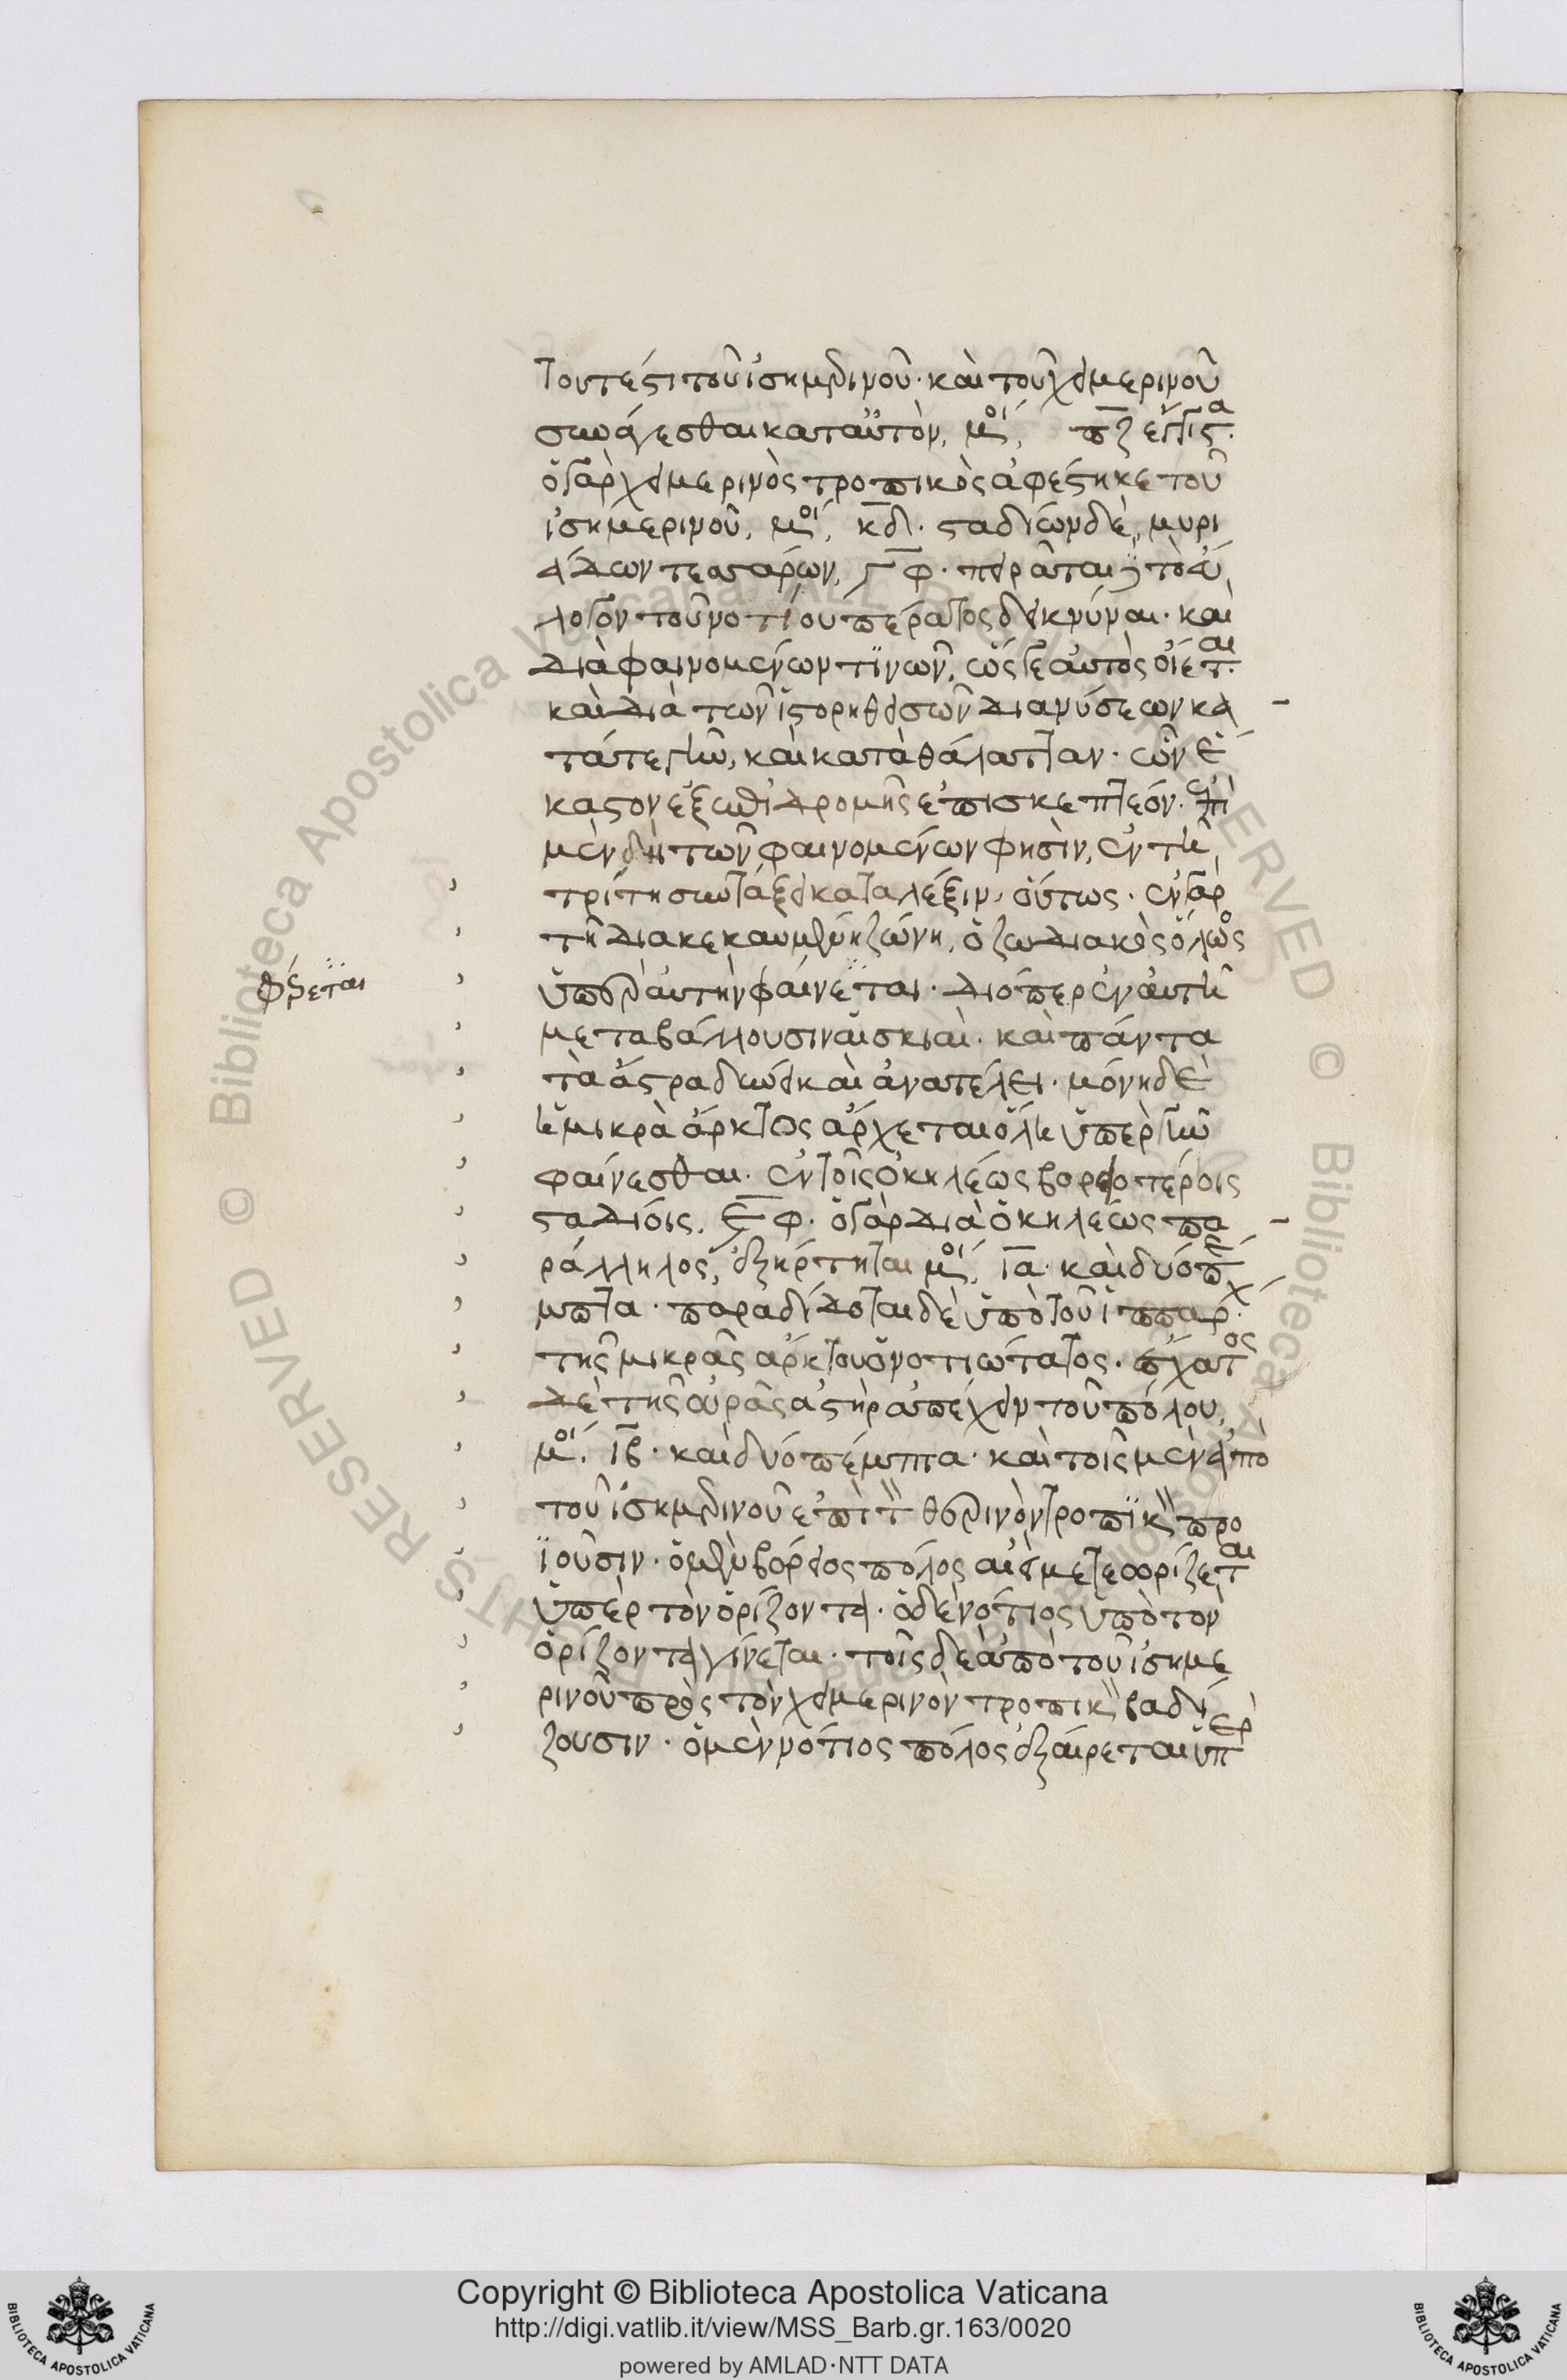 τουτέστι τοῦ ἰσημερινοῦ· καὶ τοῦ χειμερινοῦ
συνάγεσθαι κατ αὐτὸν, μοί, πζ ἔγγιστα·
ὁ γὰρ χειμερινὸς τροπικὸς ἀφέστηκε τοῦ
ἰσημερινοῦ, μοί, κδ· σταδίων δὲ, μυρι
άδων τεσσάρων, γφ· πειρᾶται τὸ εὔ
λογον τοῦ νοτίου πέρατος δεικνύναι· καὶ
διὰ φαινομένων τινῶν, ὥς γε αὐτὸς οἴεται·
καὶ διὰ τῶν ἱστορηθεισῶν διανύσεων κα
τά τε γῆν, καὶ κατὰ θάλατταν· ὧν ἕ
καστον ἐξ ὠπιδρομῆς ἐπισκεπτέον· ἐπὶ
μὲν δὴ τῶν φαινομένων φησὶν, ἐν τῇ
τρίτῃ συντάξει κατὰ λέξιν, οὕτως· ἐν γὰρ
τῇ διακεκαυμένῃ ζώνῃ, ὁ ζωδιακὸς ὅλως
φέρεται
ὑπὲρ αὐτὴν φαίνεται· διόπερ ἐν αὐτῇ
μεταβάλλουσιν αἱ σκιαὶ· καὶ πάντα
τὰ ἄστρα δύνει καὶ ἀνατέλει· μόνη δὲ
ἡ μικρὰ ἄρκτος ἄρχεται ὅλη ὑπὲρ γῆν
φαίνεσθαι· ἐν τοῖς ὀκήλεως βορειοτέροις
σταδίοις, εφ· ὁ γὰρ διὰ ὀκήλεως πα
ράλληλος, ἐξήρτηται μοί, ια· καὶ δύο πέ
μπτα· παραδίδοται δὲ ὑπὸ τοῦ ἱππάρχ·
τῆς μικρᾶς ἄρκτου ὁ νοτιώτατος· ἔσχατος
δὲ τῆς οὐρᾶς ἀστὴρ ἀπέχειν τοῦ πόλου,
μοί. ιβ· καὶ δύο πέμπτα· καὶ τοῖς μὲν ἀπὸ
τοῦ ἰσημερινοῦ ἐπὶ τ θερινὸν τροπικ προ
ϊοῦσιν· ὁ μὲν βόρειος πόλος αἰεὶ μετεωρίζεται
ὑπὲρ τὸν ὁρίζοντα· ὁ δὲ νότιος ὑπὸ τὸν
ὁρίζοντα γίνεται· τοῖς δὲ ἀπὸ τοῦ ἰσημε
ρινοῦ πρὸς τὸν χειμερινὸν τροπικ βαδί
ζουσιν· ὁ μὲν νότιος πόλος ἐξαίρεται ὑπὲρ
Copyright © Biblioteca Apostolica Vaticana
http://digi.vatlib.it/view/MSS_Barb.gr.163/0020
powered by AMLAD·NTT DATA